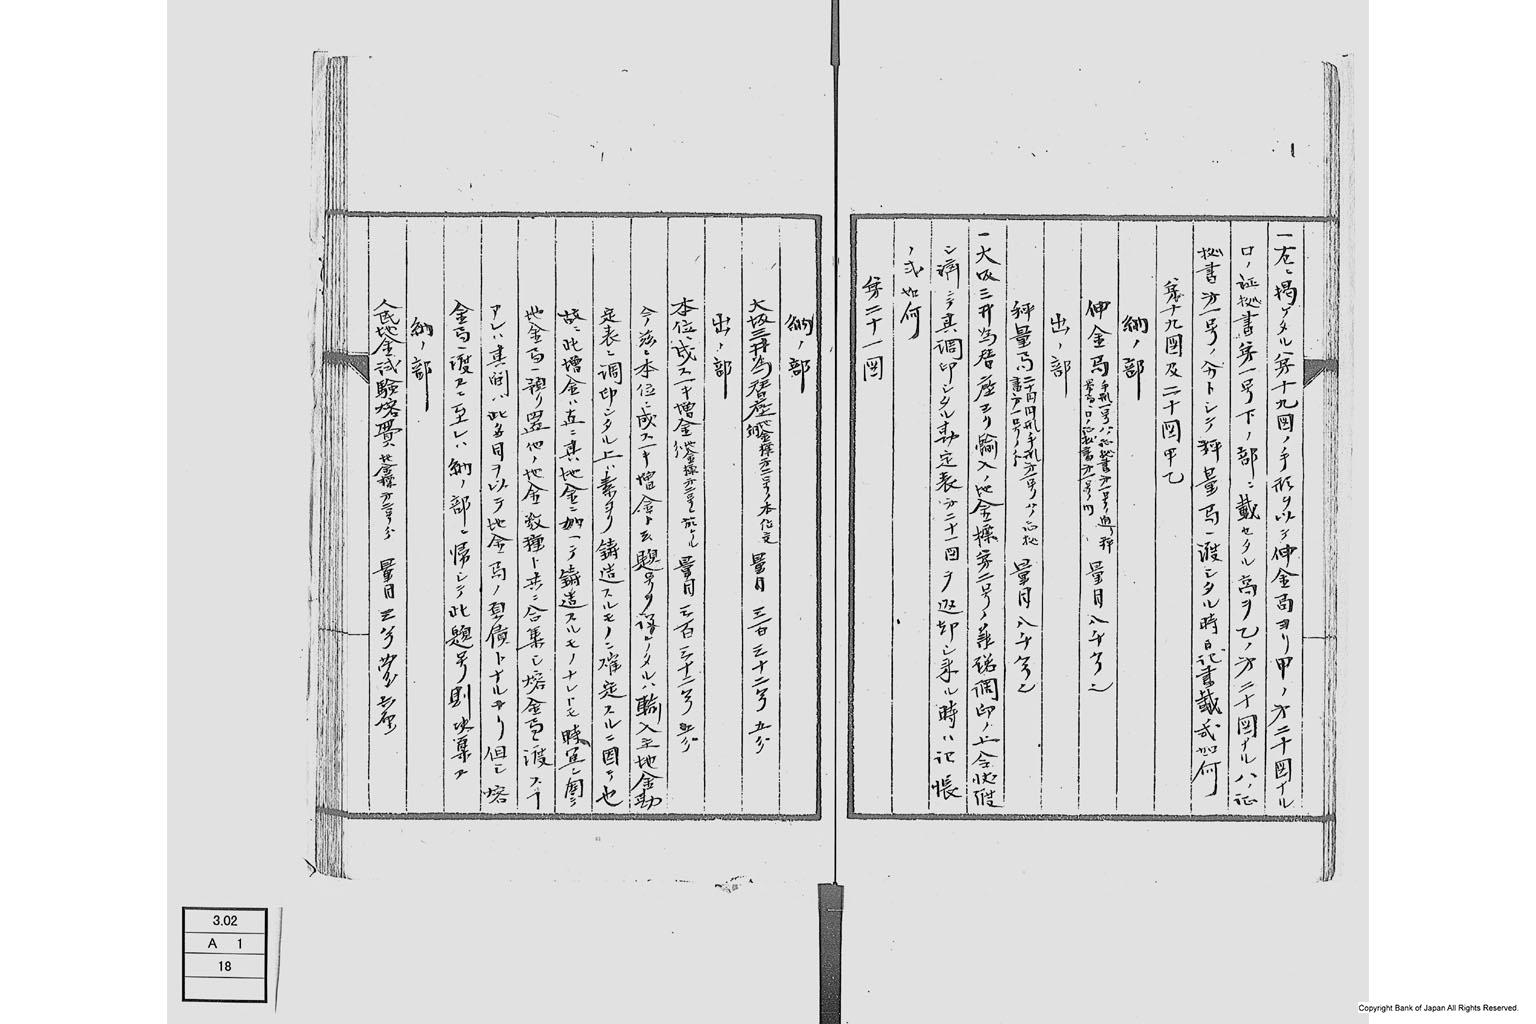 一左ニ掲ケタル第十九図ノ手形ヲ以テ伸金局ヨリ甲ノ第二十図ナル
ロノ証拠書第一号下ノ部ニ載セタル高ヲ乙ノ第二十図ナルハノ証
拠書第一号ノ分トシテ秤量局ニ渡シタル時日記書載式如何
第十九図及二十図甲乙
納ノ部
伸金局 量目 八千
出ノ部
秤量局 量目 八千
一大坂三井為替座ヨリ輸入ノ地金標第二号ノ 調印ノ上
シ済ニテ其調印シタル勘定表第二十一図ヲ返却シ来ル時ハ記帳
ノ式如何
第二十一図
納ノ部
大坂三井為替座 地金標第二号ノ本位 量目 三百三十二 五分
出ノ部
本位ニ成ス可キ増金 地金標第二号ニ於ケル 量目 三百三十二 五分
今茲ニ本位ニ成ス可キ増金ト云題号ヲ 輸入主地金勘
定表ニ調印シタル上ハ素ヨリ鋳造スルモノニ確定スルニ因テ也
故ニ此増金ハ直ニ其地金ニ加ヘテ鋳造スルモノナレトモ時宜ニ因テ
地金局ニ預リ置他ノ地金数種ト共ニ合集シ熔金局ニ渡ス
アレハ其間ハ此名目ヲ以テ地金局ノ負債トナルナリ但シ熔
金局ニ渡スニ至レハ納ノ部ニ帰シテ此題号則
納ノ部
人民地金試験熔費 地金標第二号分 量目 三
3.02
A 1
18
Copyright Bank of Japan All Rights Reserved.